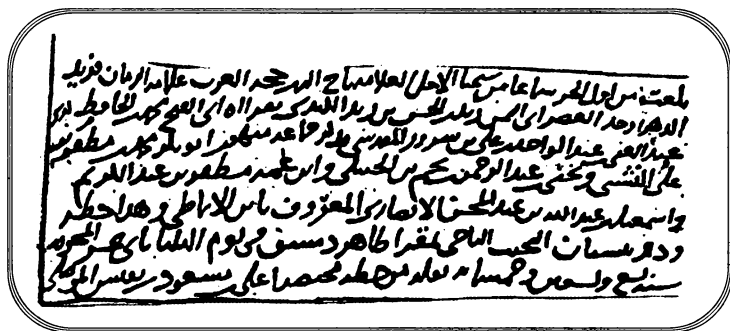 بلغت من اول الجزء سماعا من سيدنا الاجل العلامة تاج الدين حجة العرب علامة الزمان فريد
الدهر اوحد العصر ابي اليمن زيد بن الحسن بن زيد الكندي بقراءة ابي الفتح محمد بن الحافظ
عبد الغني بن عبد الواحد بن علي بن سرور المقدسي جماعة منهم ابو بكر محمد بن مظفر بن
علي النشبي ويحيى بن عبد الرحمن بن نجم بن الحنبلي وابن عمه مظفر بن عبد الكريم
واسمعيل بن عبد الله بن عبد المحسن الانصاري المعروف بابن الانماطي وهذا خطه
وذلك ببستان النجيب التاجي بمقرا ظاهر دمشق في يوم الثلثا ثاني عشر المحرم
سنة سبع وتسعين وخمسمائة نقله من خطه مختصرا علي بن مسعود بن نفيس الموصلي